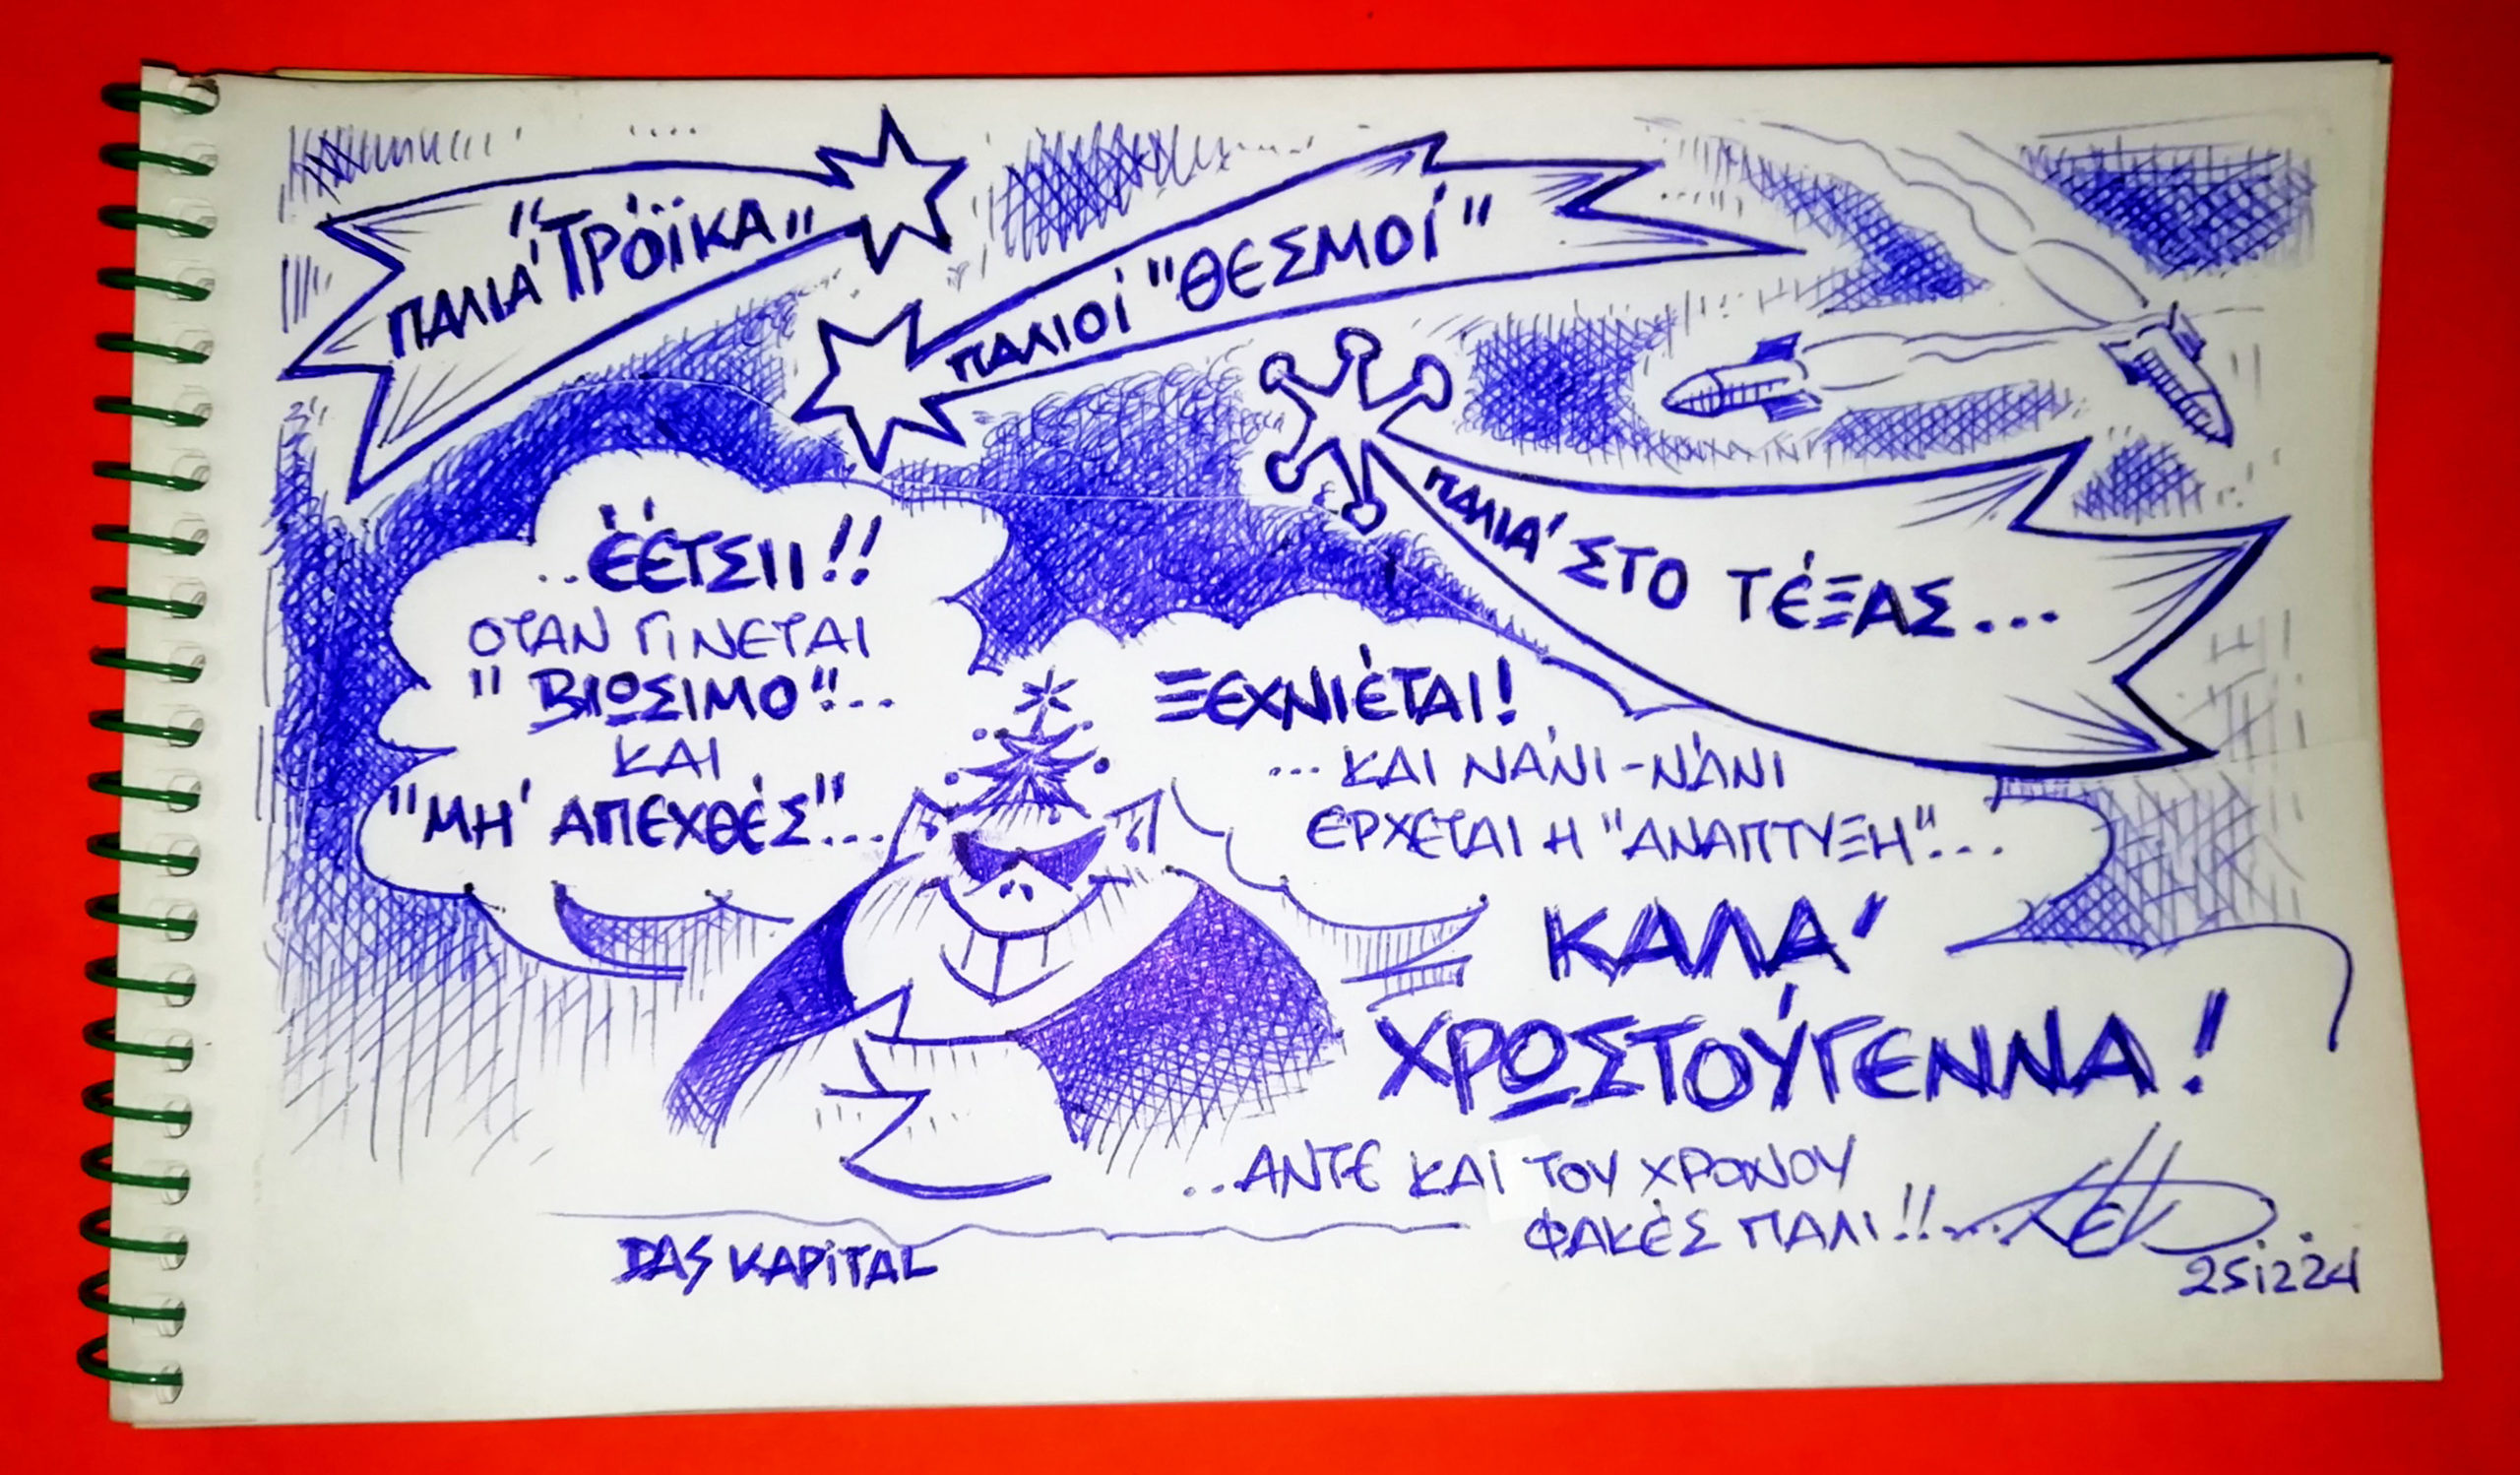 ΠΑΛΙΆ "ΤΡΌΪΚΑ"
ΠΑΛΙΟΊ "ΘΕΣΜΟΊ"
ΠΑΛΙΆ ΣΤΟ ΤΈΞΑΣ...
..ΈΈΤΣΙΙ!!
ΟΤΑΝ ΓΙΝΕΤΑΙ
"ΒΙΩΣΙΜΟ"...
ΚΑΙ
"ΜΗ ΑΠΕΧΘΈΣ"...
ΞΕΧΝΙΈΤΑΙ!
...ΚΑΙ ΝΆΝΙ-ΝΆΝΙ
ΕΡΧΕΤΑΙ Η "ΑΝΑΠΤΥΞΗ"...
ΚΑΛΆ
ΧΡΩΣΤΟΎΓΕΝΝΑ!
..ΑΝΤΕ ΚΑΙ ΤΟΥ ΧΡΟΝΟΥ
ΦΑΚΈΣ ΠΑΛΙ!!...
DAS KAPITAL
251224